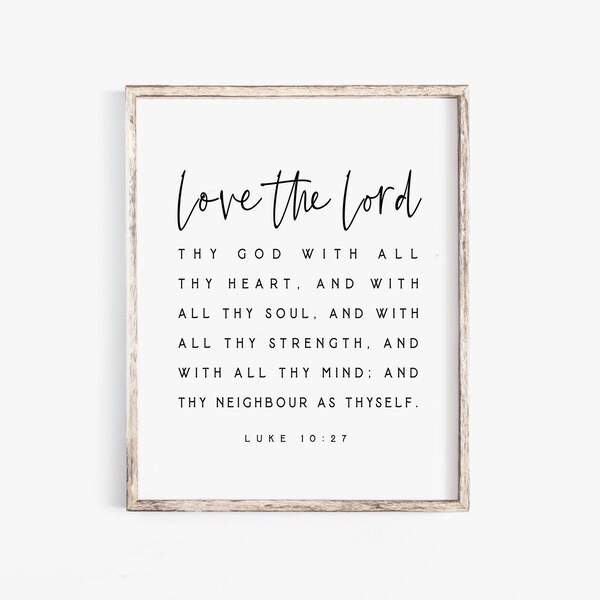 love the lord
THY GOD WITH ALL
THY HEART, AND WITH
ALL THY SOUL, AND WITH
ALL THY STRENGTH, AND
WITH ALL THY MIND; AND
THY NEIGHBOUR AS THYSELF.
LUKE 10:27